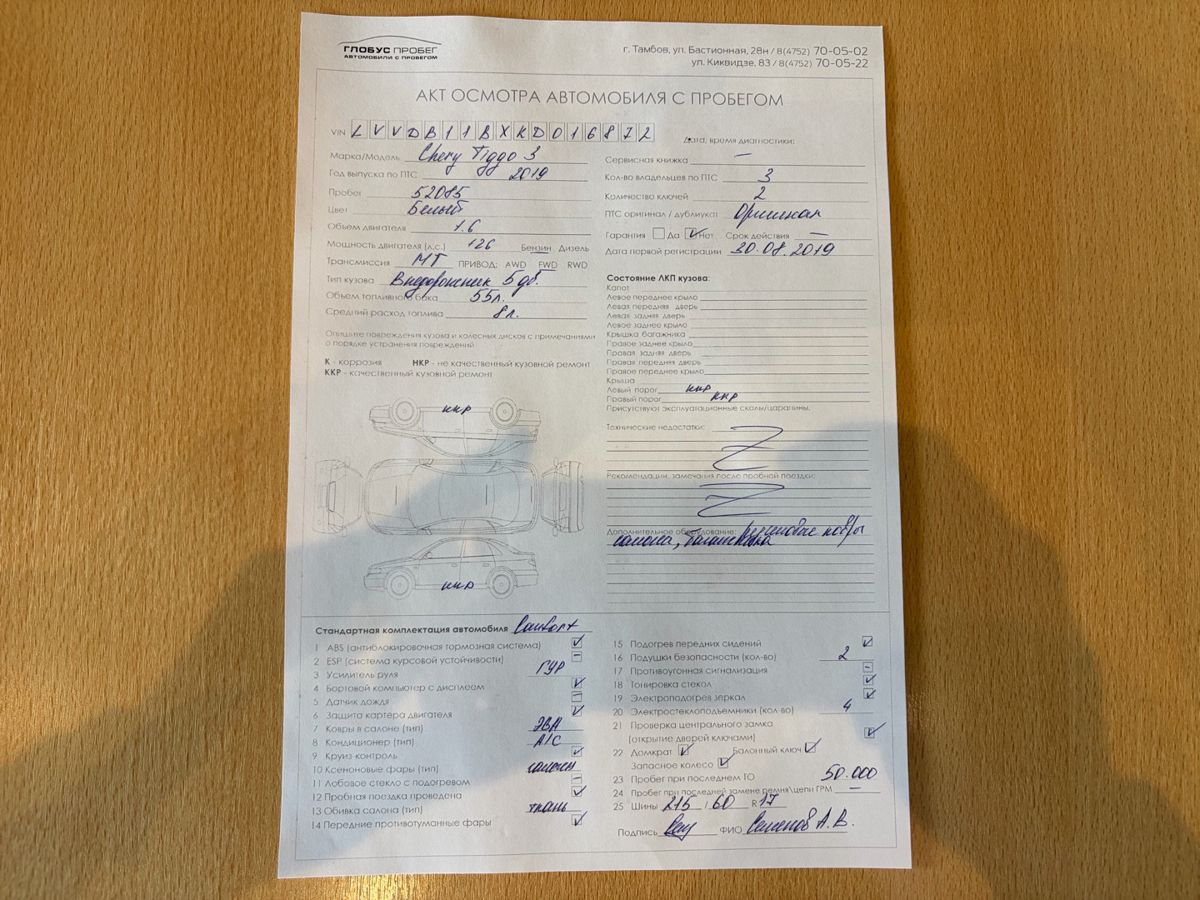 ГЛОБУС ПРОБЕГ
АВТОМОБИЛИ С ПРОБЕГОМ
г. Тамбов, ул. Бастионная, 28н / 8(4752) 70-05-02
ул. Киквидзе, 83 / 8(4752) 70-05-22
АКТ ОСМОТРА АВТОМОБИЛЯ С ПРОБЕГОМ
VIN LVVDB11BXKD016872
Марка/Модель Chery Tiggo 3
Год выпуска по ПТС 2019
Пробег 52085
Цвет Белый
Объем двигателя 1.6
Мощность двигателя (л.с.) 126 Бензин Дизель
Трансмиссия МТ ПРИВОД: AWD FWD RWD
Тип кузова Внедорожник 5 дв.
Объем топливного бака 55л.
Средний расход топлива 8л.
Опишите повреждения кузова и колесных дисков с примечаниями
о порядке устранения повреждений
К - коррозия НКР - не качественный кузовной ремонт
ККР - качественный кузовной ремонт
ккр
ккр
Дата, время диагностики:
Сервисная книжка —
Кол-во владельцев по ПТС 3
Количество ключей 2
ПТС оригинал / дубликат Оригинал
Гарантия Да Нет Срок действия —
Дата первой регистрации 30.08.2019
Состояние ЛКП кузова:
Капот
Левое переднее крыло
Левая передняя дверь
Левая задняя дверь
Левое заднее крыло
Крышка багажника
Правое заднее крыло
Правая задняя дверь
Правая передняя дверь
Правое переднее крыло
Крыша
Левый порог ккр
Правый порог ккр
Присутствуют эксплуатационные сколы/царапины.
Технические недостатки:
Рекомендации, замечания после пробной поездки:
Дополнительное оборудование: резиновые ковры
Стандартная комплектация автомобиля Comfort
1 ABS (антиблокировочная тормозная система)
2 ESP (система курсовой устойчивости) —
3 Усилитель руля ГУР
4 Бортовой компьютер с дисплеем
5 Датчик дождя —
6 Защита картера двигателя
7 Ковры в салоне (тип) ЭВА
8 Кондиционер (тип) A/C
9 Круиз-контроль
10 Ксеноновые фары (тип) галоген
11 Лобовое стекло с подогревом —
12 Пробная поездка проведена
13 Обивка салона (тип) ткань
14 Передние противотуманные фары
15 Подогрев передних сидений
16 Подушки безопасности (кол-во) 2
17 Противоугонная сигнализация —
18 Тонировка стекол
19 Электроподогрев зеркал
20 Электростеклоподъемники (кол-во) 4
21 Проверка центрального замка
(открытие дверей ключами)
22 Домкрат Балонный ключ
Запасное колесо
23 Пробег при последнем ТО 50.000
24 Пробег при последней замене ремня\цепи ГРМ —
25 Шины 215 / 60 R 17
Подпись ФИО Семенов А.В.